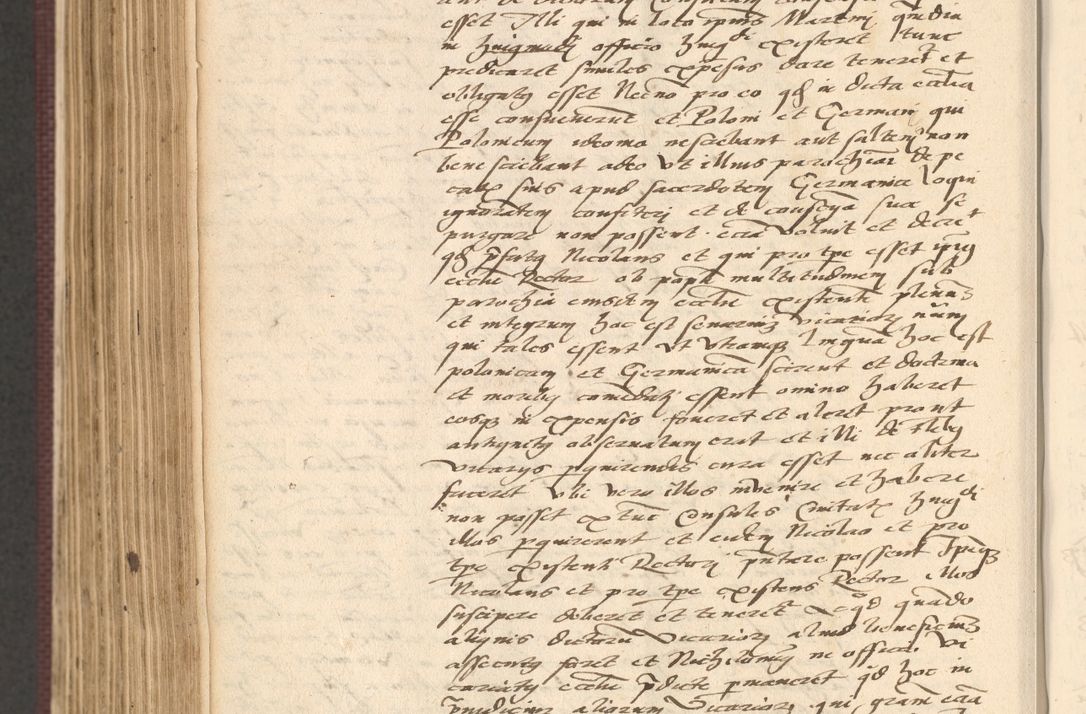 esset Illi qui in loco ipius Martini quadiu
in huiusmodi officio huiusmodi existeret tunc
predicaret similes expesas dare teneret et
obligatus esset Necno pro eo qd in dicta ecclia
esse consueuerut et Poloni et Germani qui
Polonicum ideoma nesciebant aut saltem non
bene sciebant adeo vt illius parochiani de pe
catis suis apud sacerdotem Germanice loqui
ignorantem confiteri et de conscia sua se
purgare non possent. etia voluit et decreuit
qd pfatus Nicolaus et qui pro tpe esset ipius
ecclie Rector ob populi multitudinem sub
parochia eiusdem ecclie existente plenum
et integrum hoc est senarium vicariorum numerum
qui tales essent vt vtramque linguam hoc est
polonicam et Germanica scirent et doctrina
et moribus comendati essent omnino haberet
eosque in expensis foueret et aleret prout
antiquitus obseruatum erat et illi de
vicarys pquirendis cura esset nec aliter
faceret vbi vero illos inuenire et habere
non posset extuc Consules Ciuitatis huiusmodi
illos pquirerent et eidem Nicolao et pro
tpe existenti Rectori pntare possent Ipseque
Nicolaus et pro tpe existens Rector illos
suscipere deberet et teneretur Et qd quado
aliquis dictoru vicariorum aliud beneficium
assecutus foret et Nichilominus in officio vi
cariatus ecclie pdicte pmaneret qd hoc in
preiudicium aliorum vicariorum qui gratiam etia